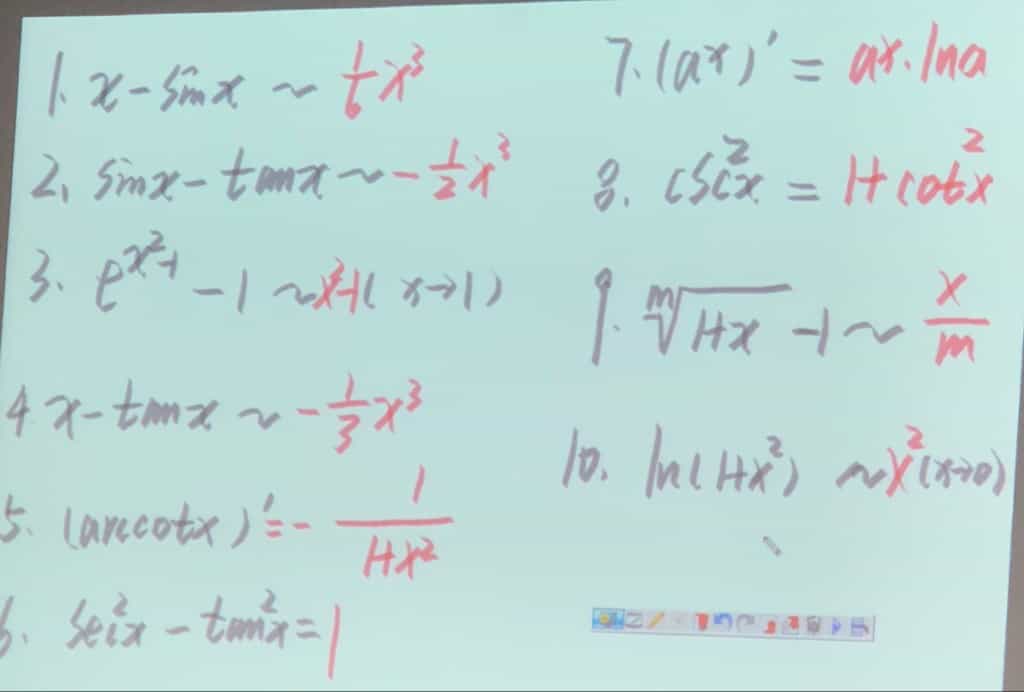 1. x - sinx ~ 1/6 x³
2. sinx - tanx ~ - 1/2 x³
3. e^(x²-1) - 1 ~ x²-1 (x→1)
4 x - tanx ~ - 1/3 x³
5. (arccotx)' = - 1/(1+x²)
6. sec²x - tan²x = 1
7. (a^x)' = a^x · lna
8. csc²x = 1+cot²x
9. ᵐ√(1+x) - 1 ~ x/m
10. ln(1+x²) ~ x² (x→0)